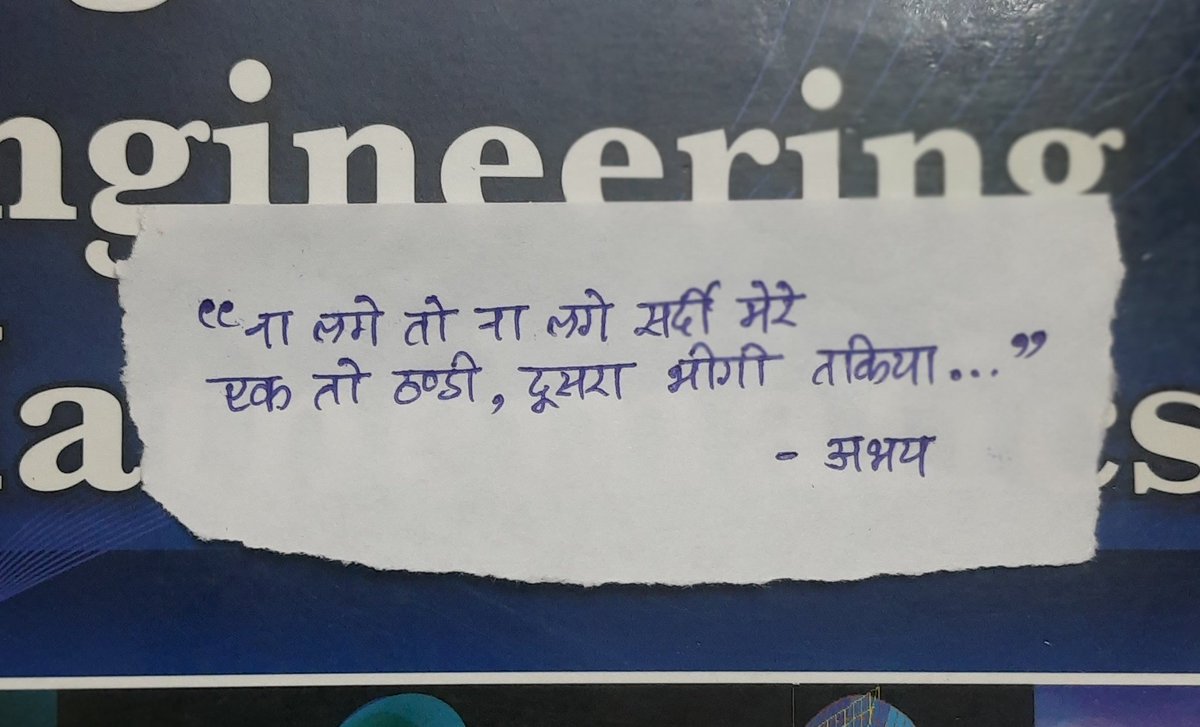 ngineering
“ना लगे तो ना लगे सर्दी मेरे
एक तो ठण्डी, दूसरा भीगी तकिया...”
- अभय